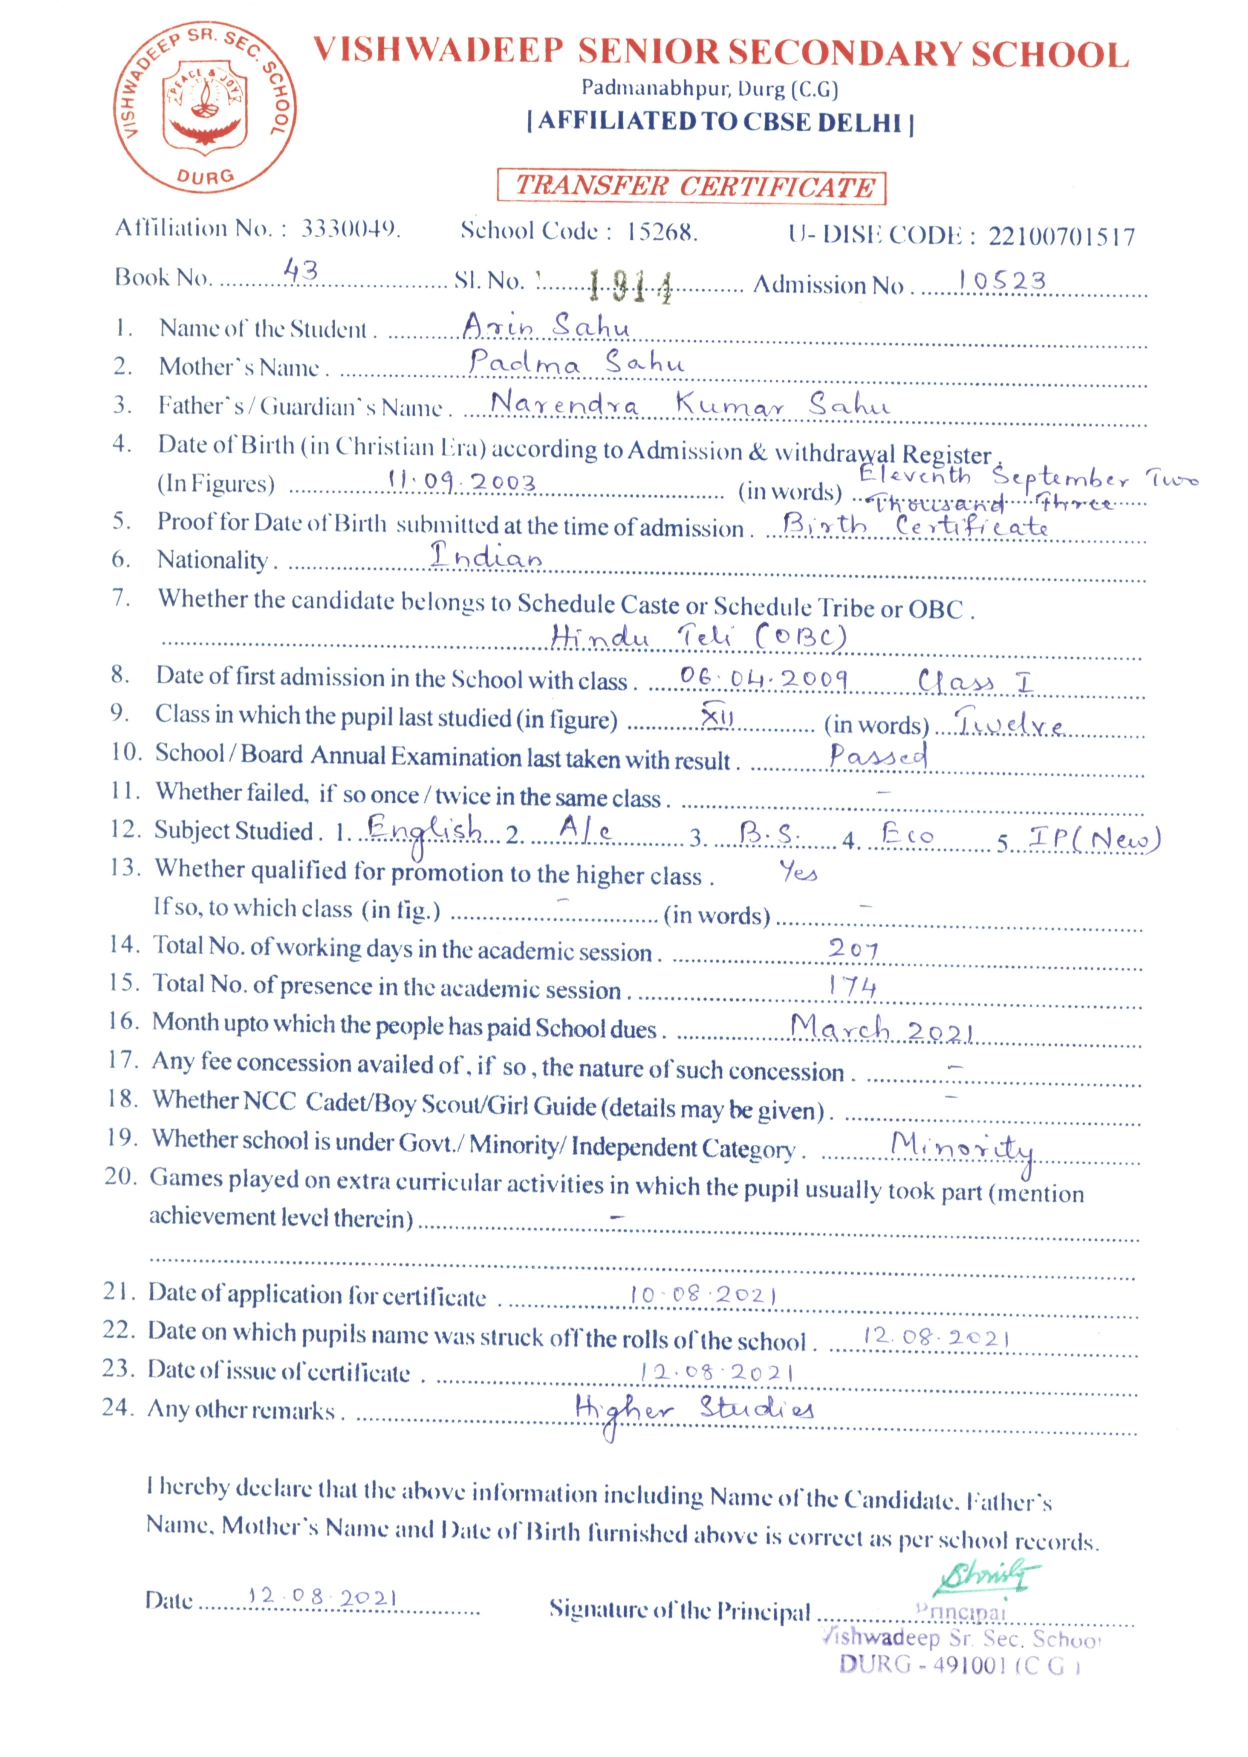 VISHWADEEP SR. SEC. SCHOOL
PEACE & JOY
DURG
VISHWADEEP SENIOR SECONDARY SCHOOL
Padmanabhpur, Durg (C.G)
| AFFILIATED TO CBSE DELHI |
TRANSFER CERTIFICATE
Affiliation No. : 3330049. School Code : 15268. U- DISE CODE : 22100701517
Book No. 43 Sl. No. : 1914 Admission No. 10523
1. Name of the Student. Arin Sahu
2. Mother's Name. Padma Sahu
3. Father's / Guardian's Name. Narendra Kumar Sahu
4. Date of Birth (in Christian Era) according to Admission & withdrawal Register.
(In Figures) 11.09.2003 (in words) Eleventh September Two
Thousand Three
5. Proof for Date of Birth submitted at the time of admission. Birth Certificate
6. Nationality. Indian
7. Whether the candidate belongs to Schedule Caste or Schedule Tribe or OBC.
Hindu Teli (OBC)
8. Date of first admission in the School with class. 06.04.2009 Class I
9. Class in which the pupil last studied (in figure) XII (in words) Twelve
10. School / Board Annual Examination last taken with result. Passed
11. Whether failed, if so once / twice in the same class. -
12. Subject Studied. 1. English 2. A/c 3. B.S. 4. Eco 5. IP(New)
13. Whether qualified for promotion to the higher class. Yes
If so, to which class (in fig.) - (in words) -
14. Total No. of working days in the academic session. 207
15. Total No. of presence in the academic session. 174
16. Month upto which the people has paid School dues. March 2021
17. Any fee concession availed of, if so, the nature of such concession. -
18. Whether NCC Cadet/Boy Scout/Girl Guide (details may be given). -
19. Whether school is under Govt./ Minority/ Independent Category. Minority
20. Games played on extra curricular activities in which the pupil usually took part (mention
achievement level therein) -
21. Date of application for certificate . 10.08.2021
22. Date on which pupils name was struck off the rolls of the school. 12.08.2021
23. Date of issue of certificate . 12.08.2021
24. Any other remarks. Higher Studies
I hereby declare that the above information including Name of the Candidate, Father's
Name, Mother's Name and Date of Birth furnished above is correct as per school records.
Date 12.08.2021 Signature of the Principal
Principal
Vishwadeep Sr. Sec. School
DURG - 491001 (C G )